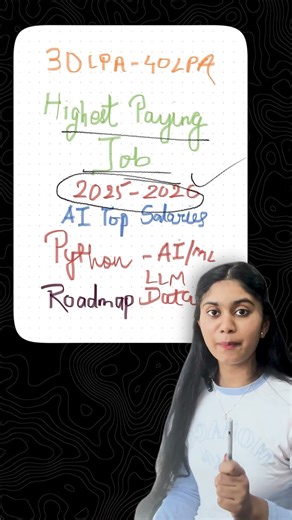 30LPA-40LPA
Highest Paying
Job
2025-2026
AI Top Salaries
Python - AI/ML
LLM
Roadmap Data